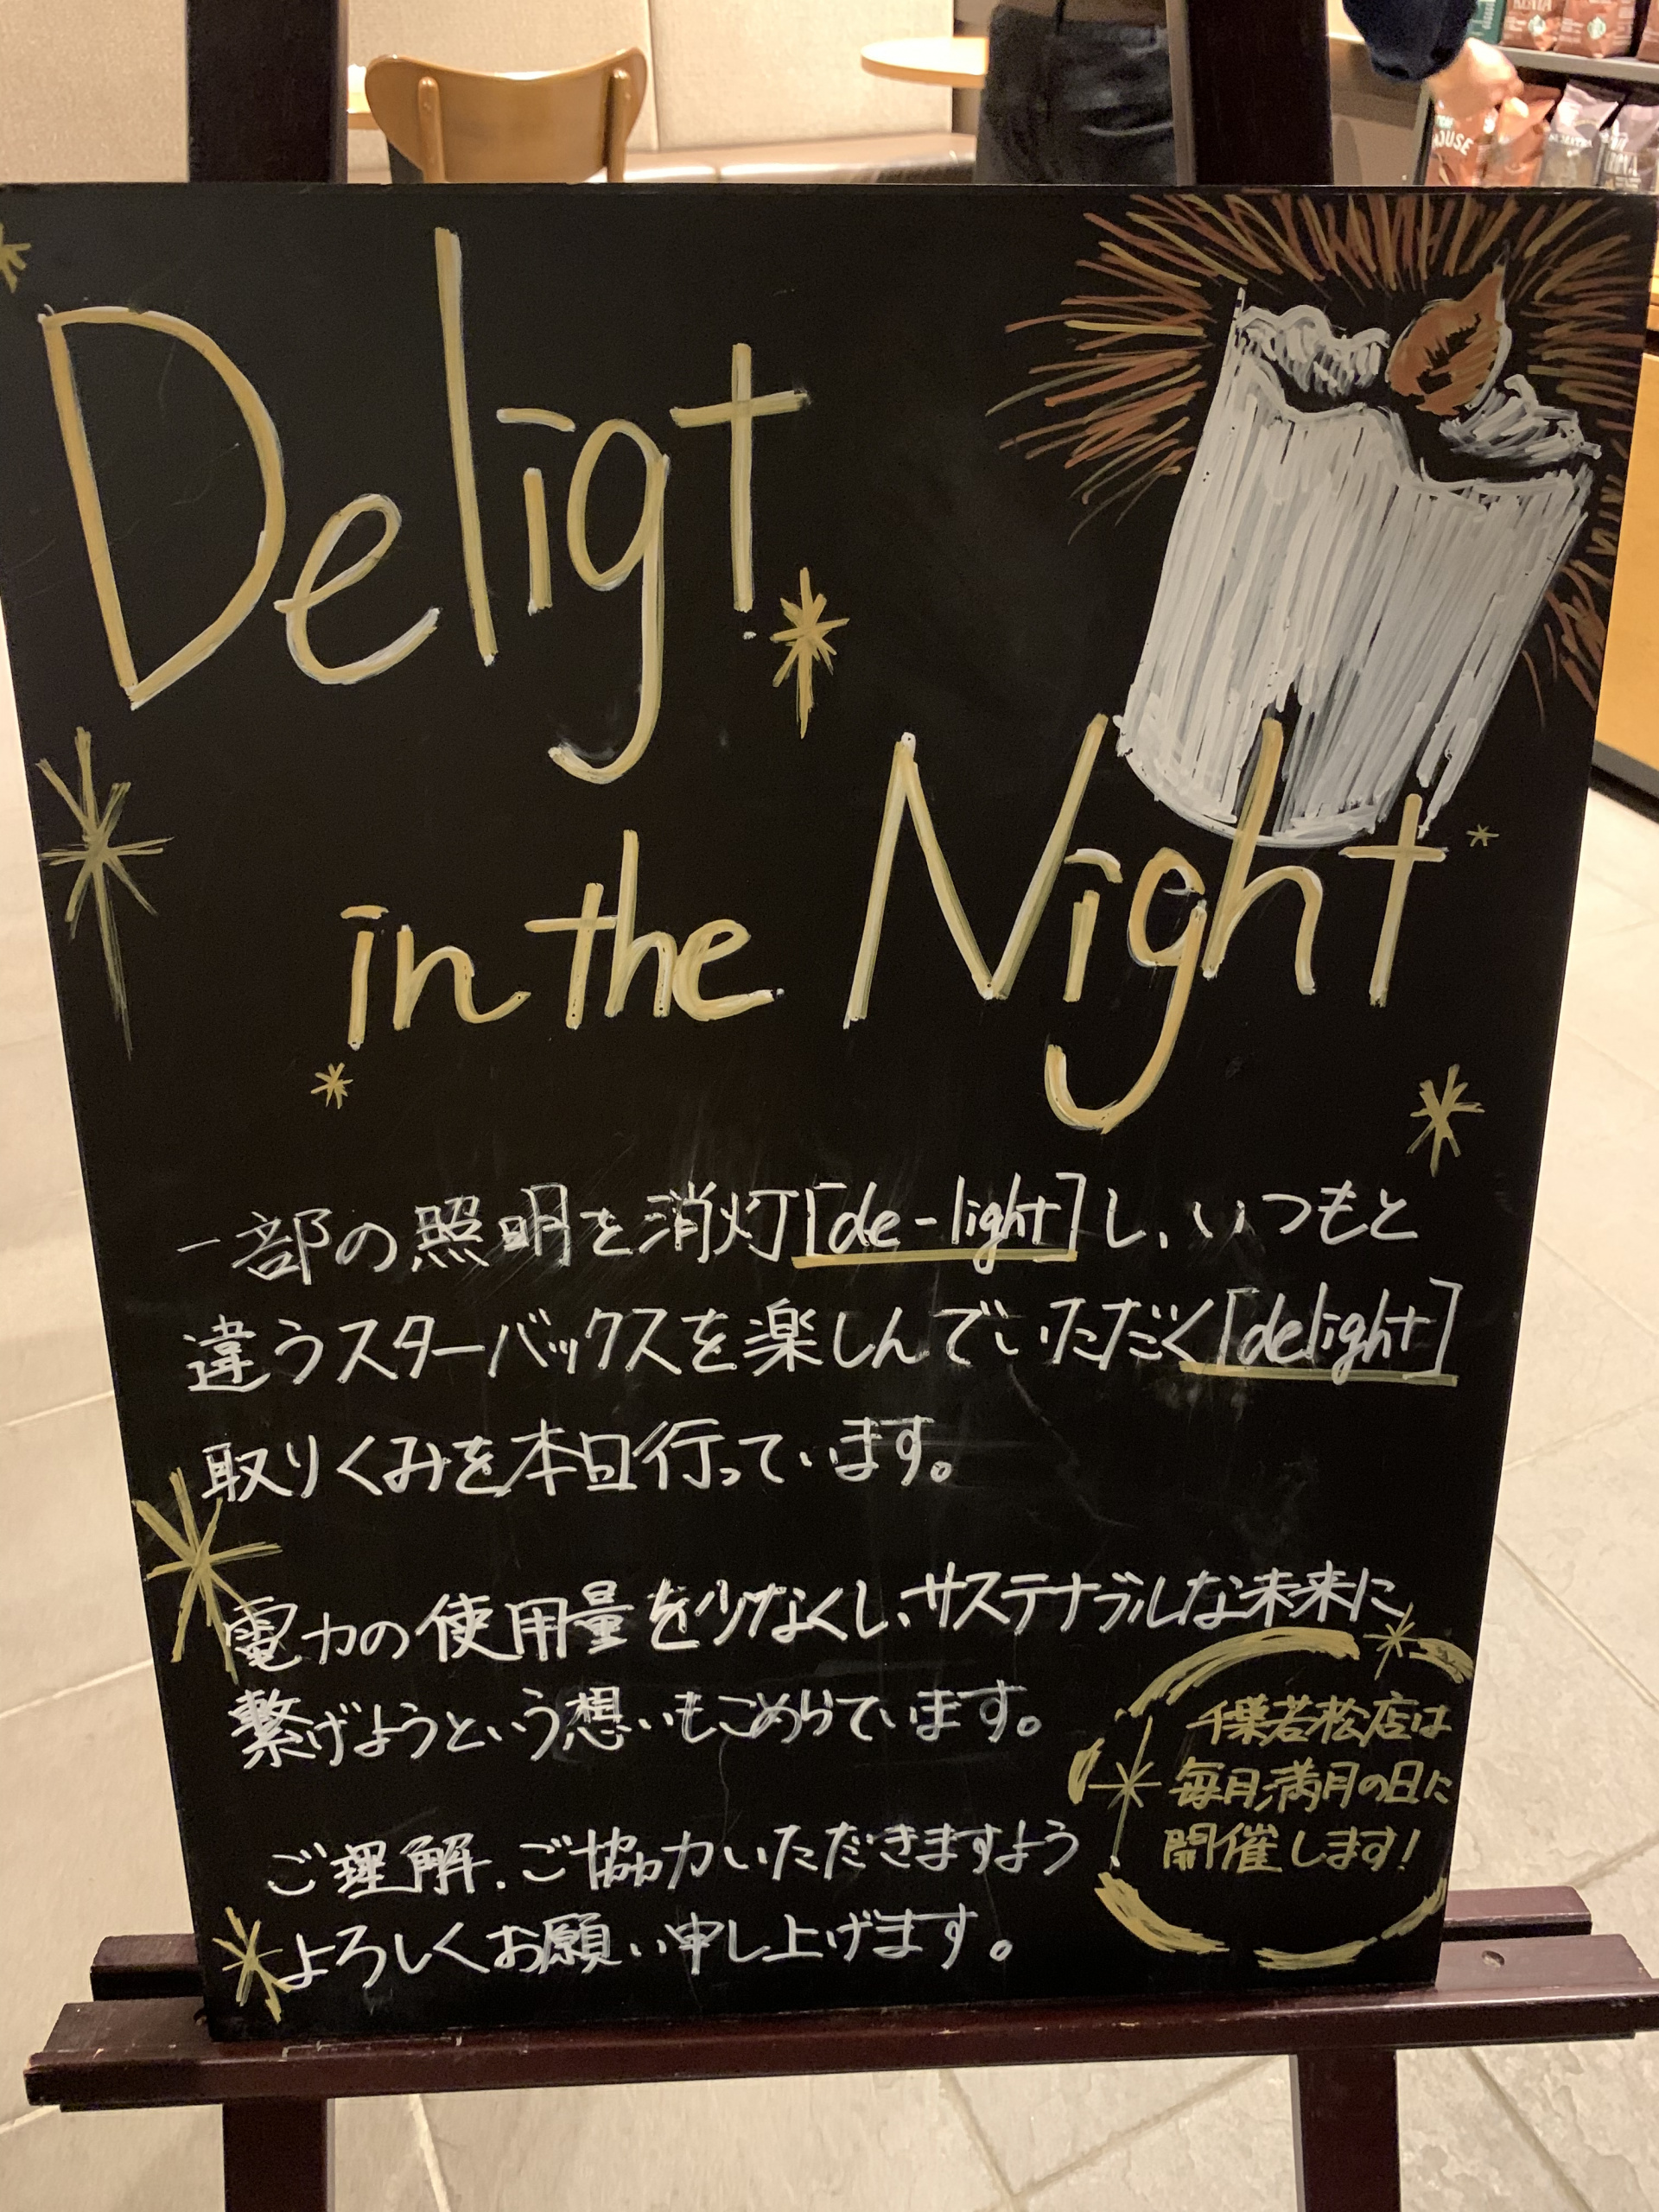 Deligt
in the Night
一部の照明を消灯[de-light]し、いつもと
違うスターバックスを楽しんでいただく[delight]
取りくみを本日行っています。
電力の使用量を少なくし、サステナブルな未来に
繋げようという想いもこめらています。
ご理解、ご協力いただきますよう
よろしくお願い申し上げます。
千葉若松店は
毎月満月の日に
開催します!